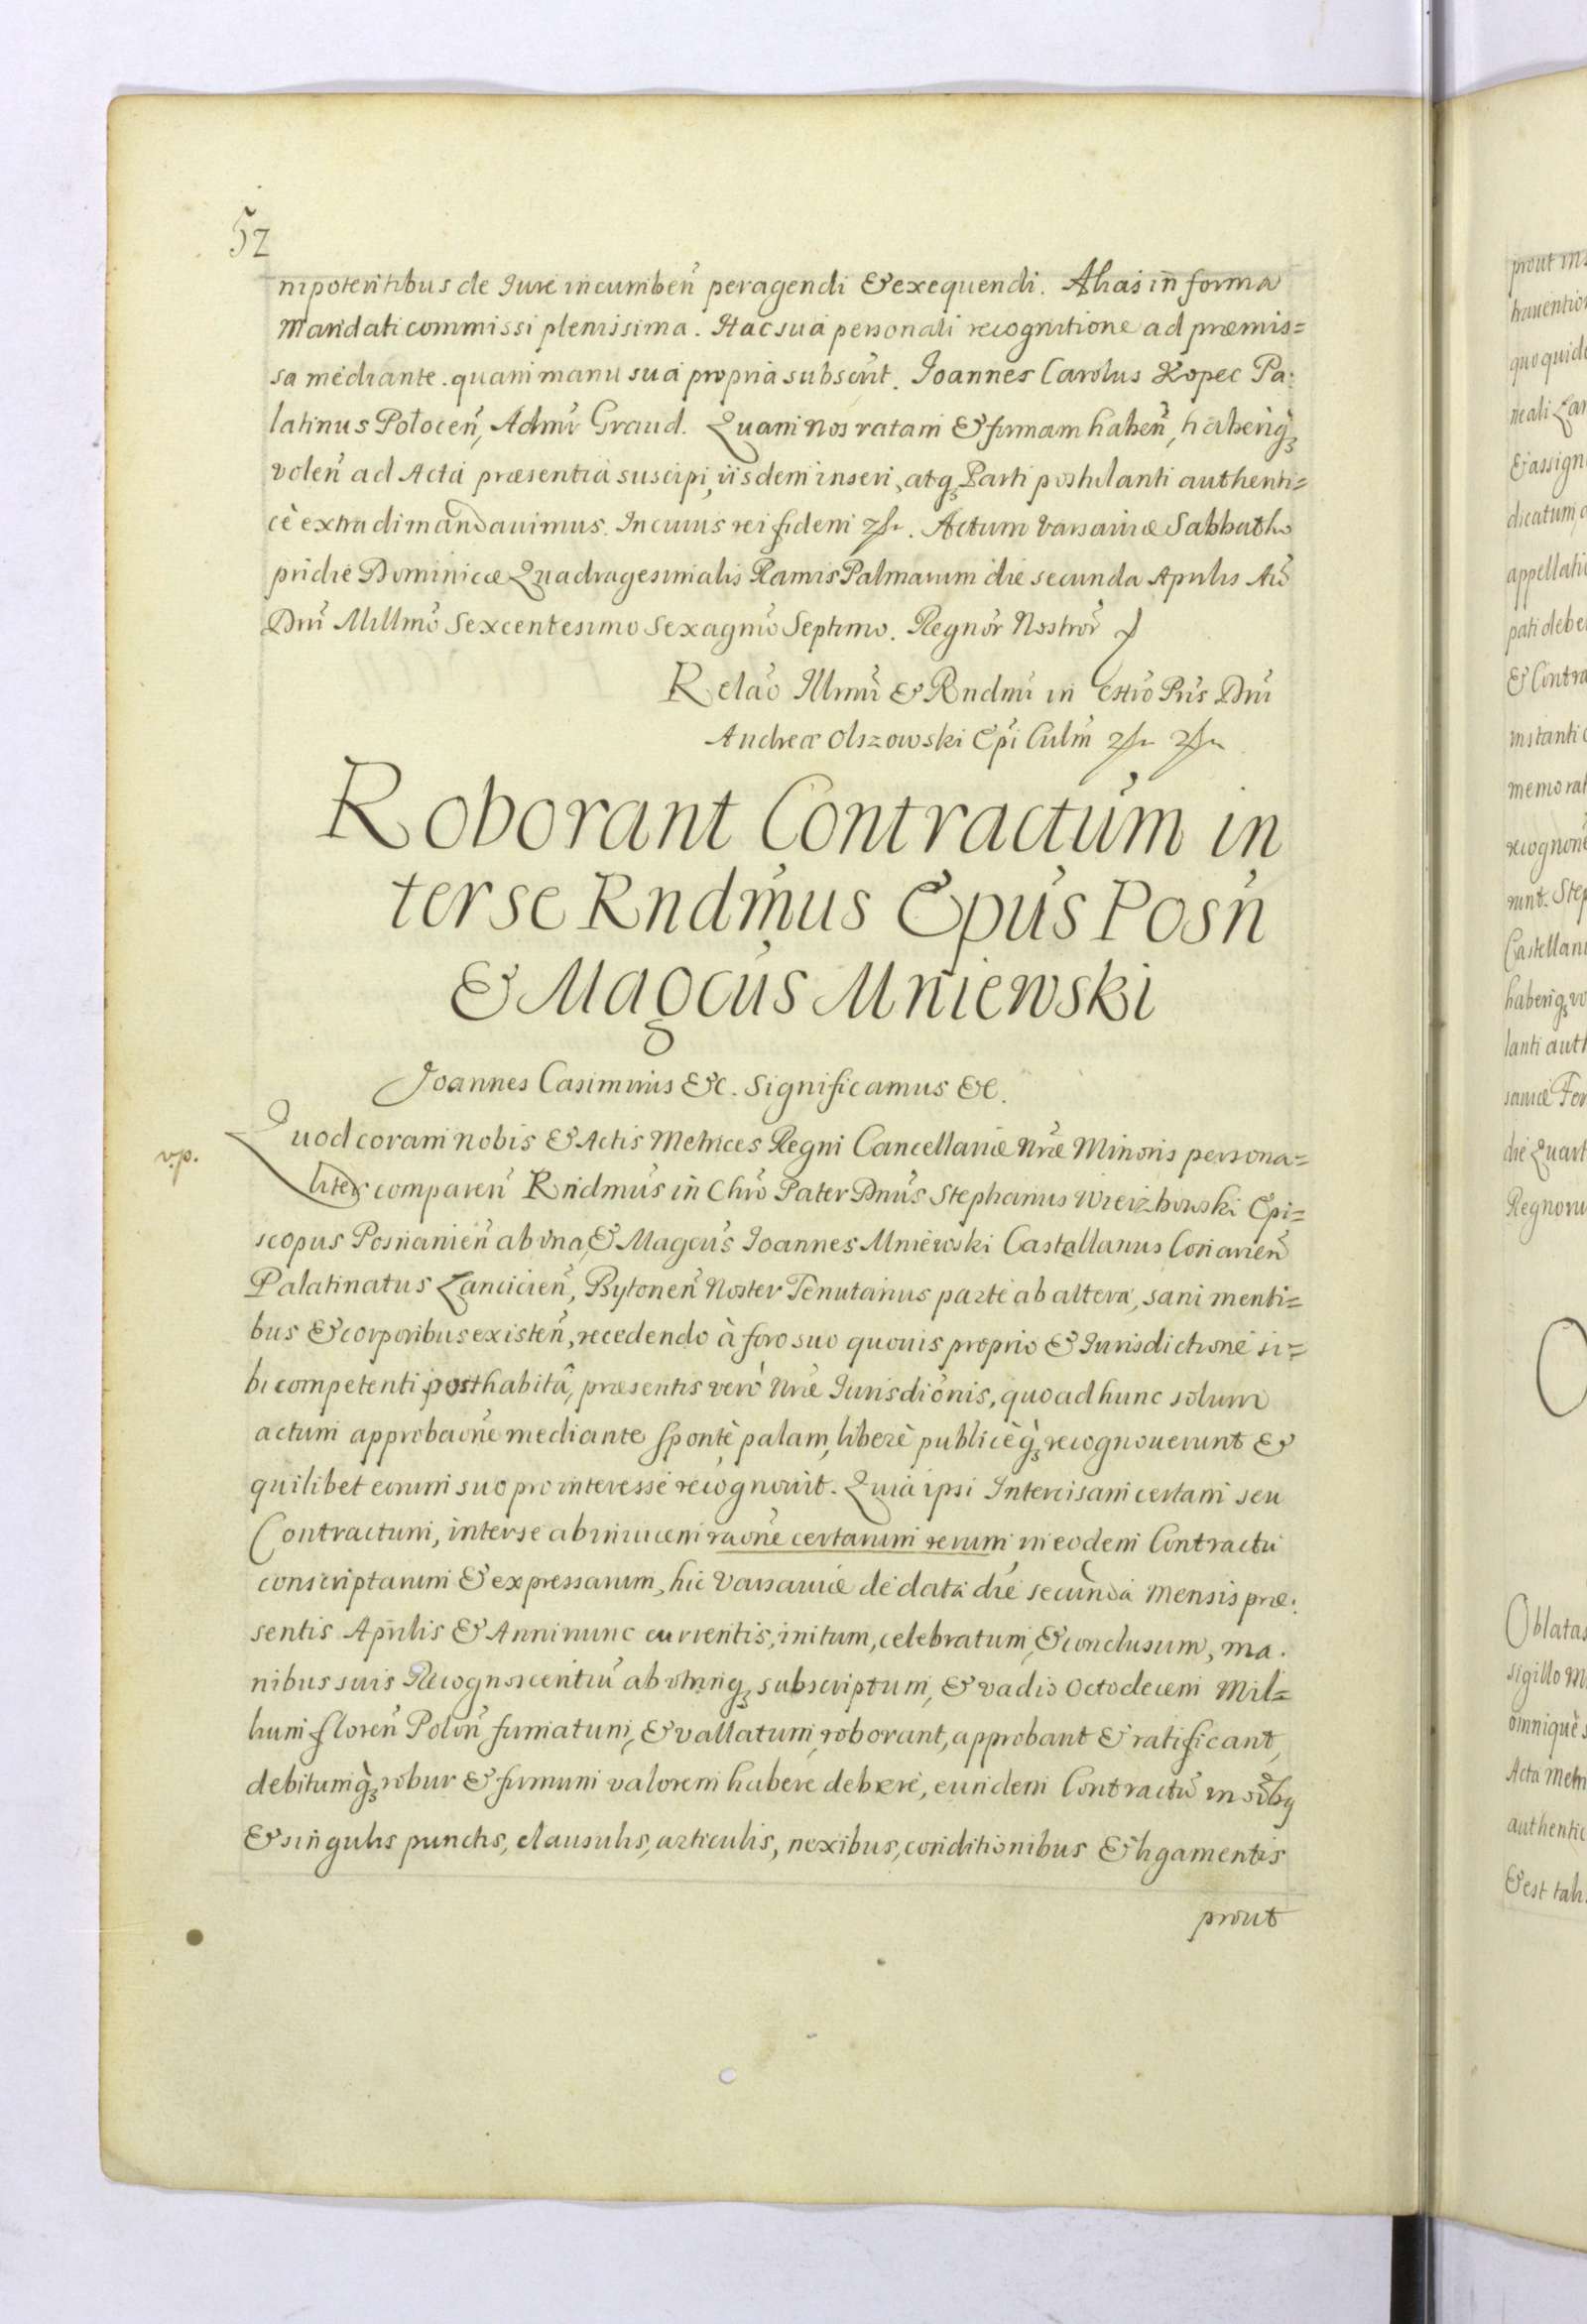 52
nipotentibus de Jure incumben̄ peragendi & exequendi. Alias in forma
Mandati commissi plenissima. Hac sua personali recognitione ad præmis=
sa mediante. quam manu sua propria subscrit. Joannes Carolus Kopec Pa:
latinus Polocen̄, Admr̄ Graud. Quam nos ratam & firmam haben̄, haberiq̃
volen̄ ad Acta præsentia suscipi, iisdem inseri, atq̃ Parti postulanti authenti=
cè extradi mandauimus. In cuius rei fidem &c. Actum Varsauiæ Sabbatho
pridie Dominicæ Quadragesimalis Ramis Palmarum die secunda Aprilis Aō
Dnī Millmō Sexcentesimo Sexagmō Septimo. Regnor̄ Nostror̄ &
Relaō Illmī & Rndmī in Chrō Pris Dnī
Andreæ Olszowski Epī Culm̄ &c &c
Roborant Contractum in
ter se Rndm̄us Epūs Posn̄
& Magcūs Mniewski
Joannes Casimirus &c. Significamus &c.
v.p.
Quod coram nobis & Actis Metrices Regni Cancellariæ Nrǣ Minoris persona=
liter comparen̄ Rndmūs in Chrō Pater Dnūs Stephanus Wierzbowski Epi=
scopus Posnanien̄ ab vna, & Magcūs Joannes Mniewski Castellanus Conarien̄
Palatinatus Lancicien̄, Bytonen̄ Noster Tenutarius parte ab altera, sani menti=
bus & corporibus existen̄, recedendo à foro suo quouis proprio & Jurisdictione si=
bi competenti posthabitâ, præsentis verò Nrǣ Jurisdiōnis, quo ad hunc solum
actum approbaōne mediante spontè palam, liberè publicèq̃ recognouerunt &
quilibet eorum suo pro interesse recognouit. Quia ipsi Intercisam certam seu
Contractum, inter se ab inuicem raōne certarum rerum in eodem Contractu
conscriptarum & expressarum, hic Varsauiæ de data die secunda Mensis præ:
sentis Aprilis & Anni nunc currentis, initum, celebratum, & conclusum, ma.
nibus suis Recognoscentiū ab vtrinq̃ subscriptum, & vadio Octodecem Mil=
lium floren̄ Polon̄ firmatum, & vallatum, roborant, approbant & ratificant,
debitumq̃ robur & firmum valorem habere debere, eundem Contractū in oībg
& singulis punctis, clausulis, articulis, nexibus, conditionibus & ligamentis
prout